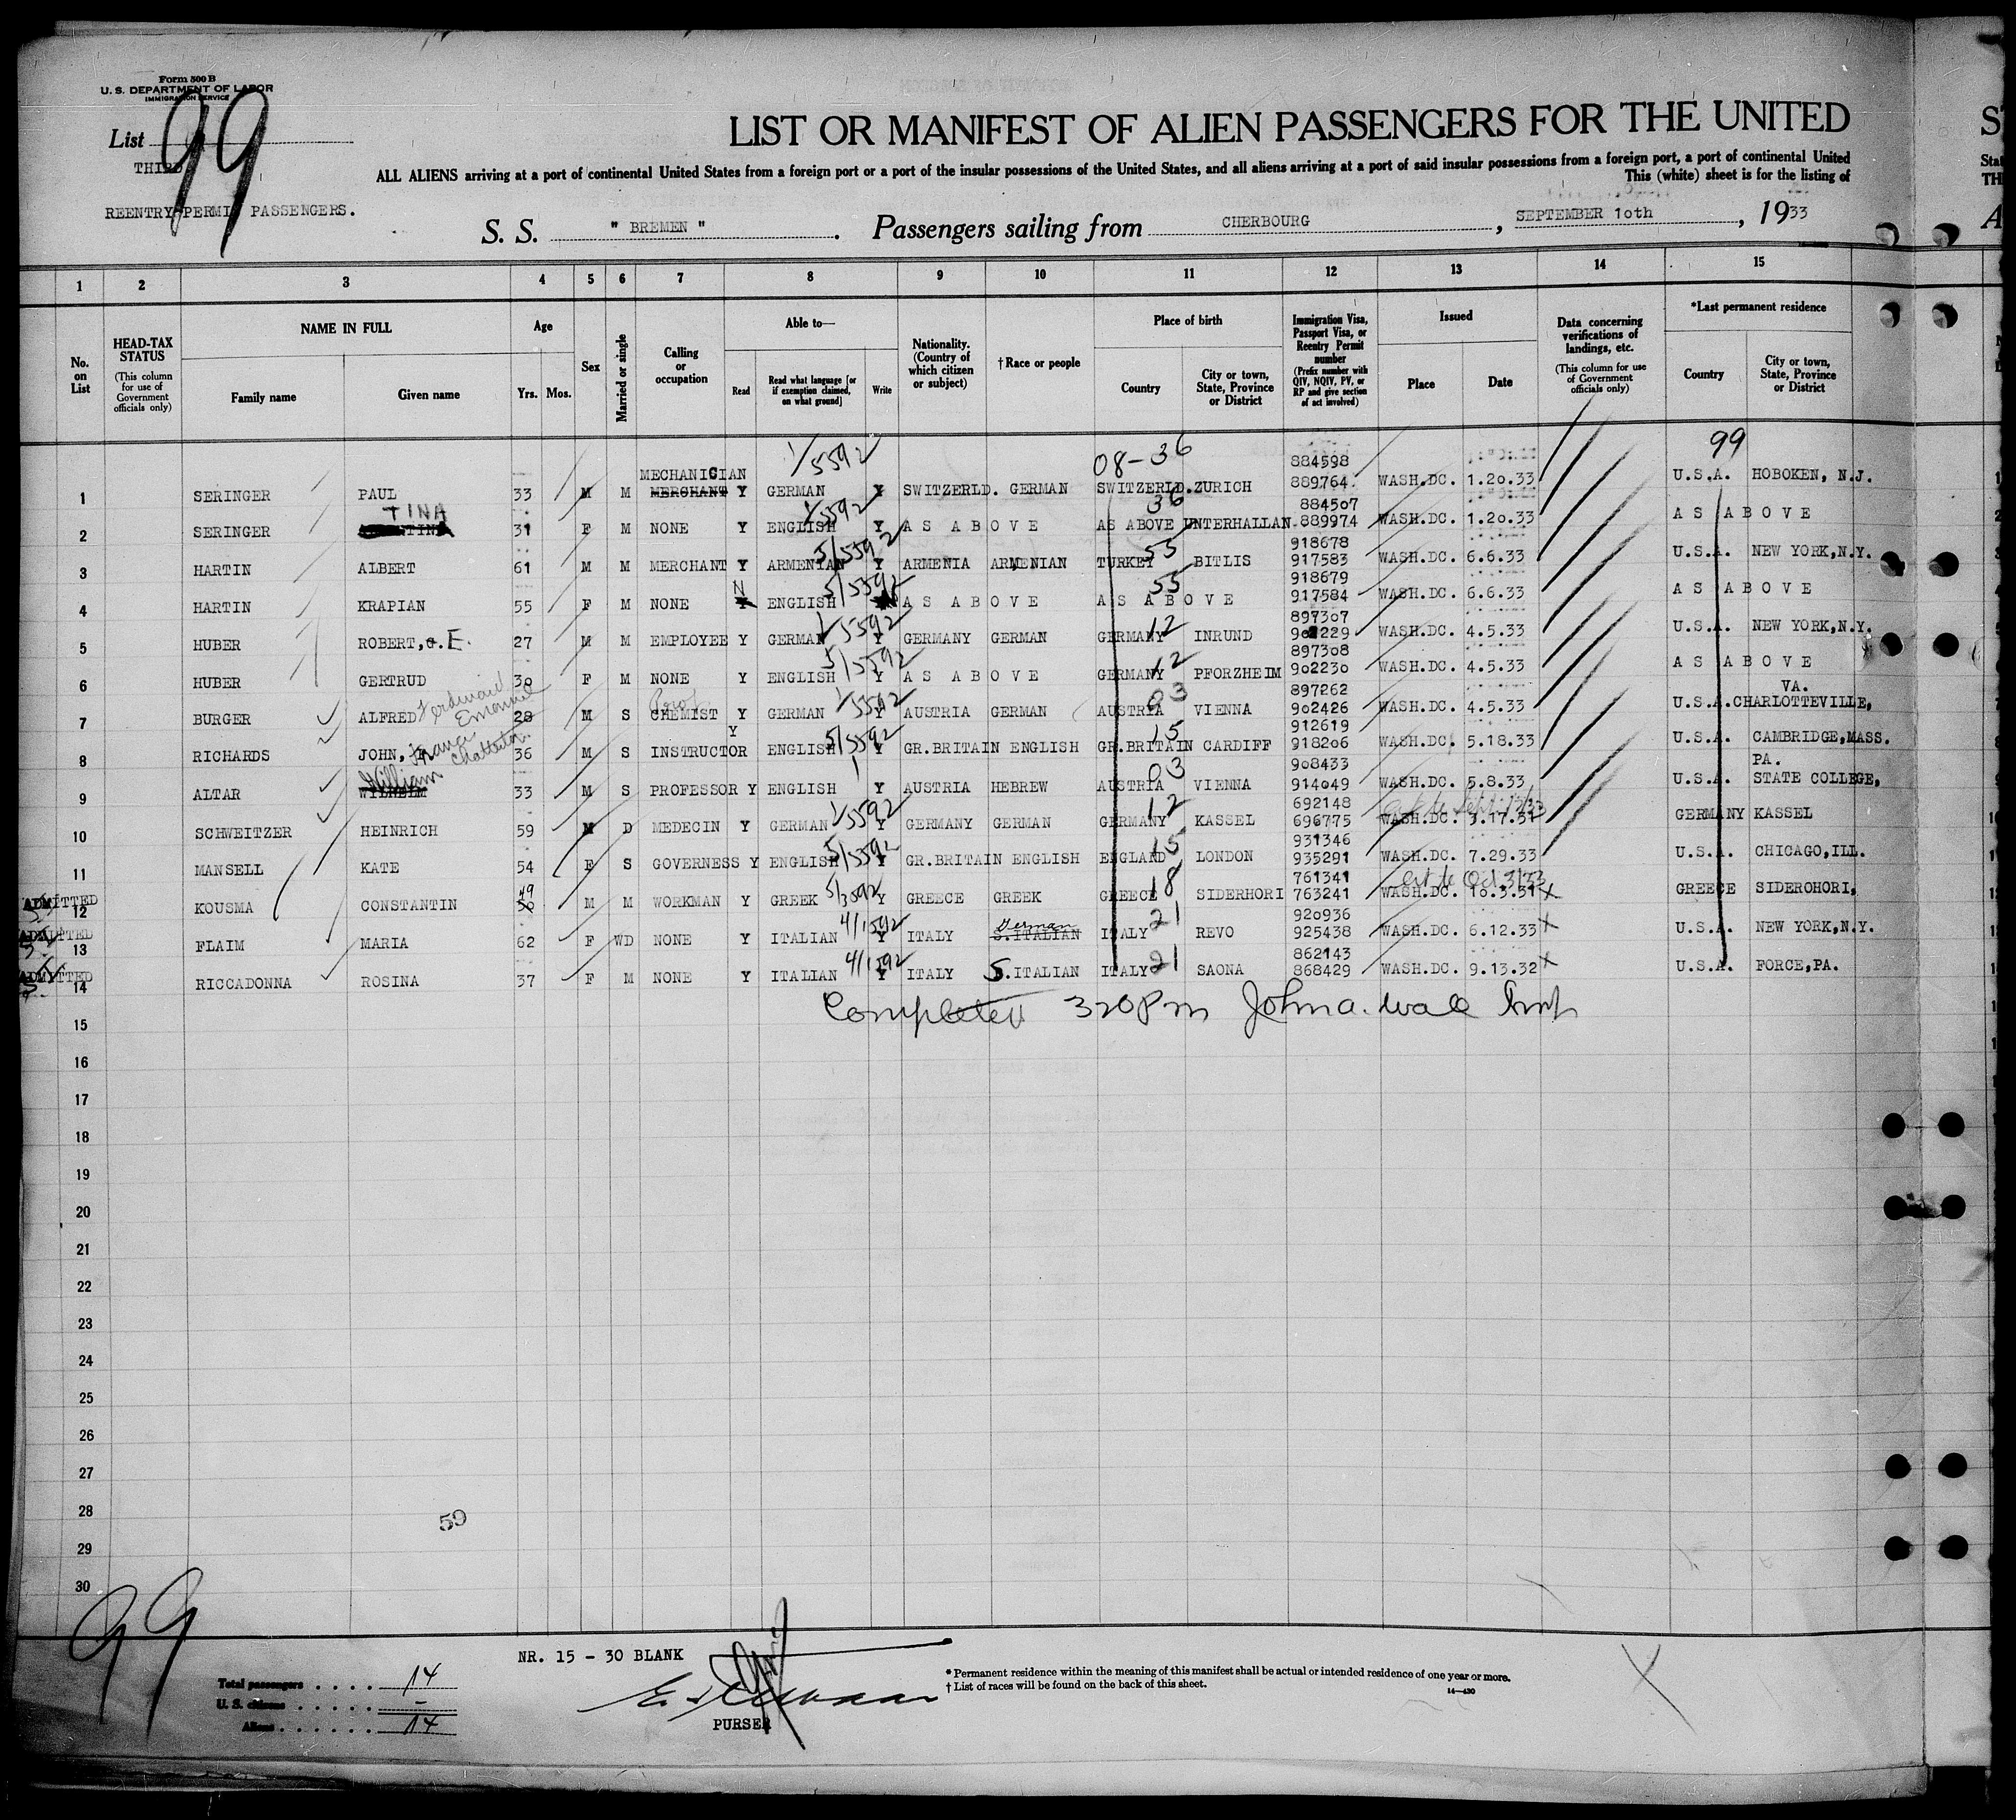 Form 500 B
U. S. DEPARTMENT OF LABOR
IMMIGRATION SERVICE
List 99
THIRD
REENTRY PERMIT PASSENGERS.
LIST OR MANIFEST OF ALIEN PASSENGERS FOR THE UNITED
ALL ALIENS arriving at a port of continental United States from a foreign port or a port of the insular possessions of the United States, and all aliens arriving at a port of said insular possessions from a foreign port, a port of continental United
This (white) sheet is for the listing of
S. S. " BREMEN ". Passengers sailing from CHERBOURG, SEPTEMBER 1oth, 1933
1 2 3 4 5 6 7 8 9 10 11 12 13 14 15
No. on List
HEAD-TAX STATUS (This column for use of Government officials only)
NAME IN FULL
Family name Given name
Age
Yrs. Mos.
Sex
Married or single
Calling or occupation
Able to—
Read Read what language [or if exemption claimed, on what ground] Write
Nationality. (Country of which citizen or subject)
† Race or people
Place of birth
Country City or town, State, Province or District
Immigration Visa, Passport Visa, or Reentry Permit number (Prefix number with QIV, NQIV, PV, or RP and give section of act involved)
Issued
Place Date
Data concerning verifications of landings, etc. (This column for use of Government officials only)
*Last permanent residence
Country City or town, State, Province or District
1/5592 08-36 884598 99
MECHANICIAN
1 SERINGER PAUL 33 M M MERCHANT Y GERMAN Y SWITZERLD. GERMAN SWITZERLD. ZURICH 889764. WASH.DC. 1.20.33 U.S.A. HOBOKEN, N.J.
TINA 1/5592 36 884507
2 SERINGER 31 F M NONE Y ENGLISH Y AS ABOVE AS ABOVE UNTERHALLAN 889974 WASH.DC. 1.20.33 AS ABOVE
5/5592 55 918678
3 HARTIN ALBERT 61 M M MERCHANT Y ARMENIAN Y ARMENIA ARMENIAN TURKEY BITLIS 917583 WASH.DC. 6.6.33 U.S.A. NEW YORK,N.Y.
N 5/5592 55 918679
4 HARTIN KRAPIAN 55 F M NONE ENGLISH AS ABOVE AS ABOVE 917584 WASH.DC. 6.6.33 AS ABOVE
1/5592 12 897307
5 HUBER ROBERT, a. E. 27 M M EMPLOYEE Y GERMAN Y GERMANY GERMAN GERMANY INRUND 902229 WASH.DC. 4.5.33 U.S.A. NEW YORK,N.Y.
5/5592 12 897308
6 HUBER GERTRUD 30 F M NONE Y ENGLISH Y AS ABOVE GERMANY PFORZHEIM 902230 WASH.DC. 4.5.33 AS ABOVE
Ferdinand Emanuel Prof 1/5592 03 897262 VA.
7 BURGER ALFRED 28 M S CHEMIST Y GERMAN Y AUSTRIA GERMAN AUSTRIA VIENNA 902426 WASH.DC. 4.5.33 U.S.A. CHARLOTTEVILLE,
Francis Chatterton Y 5/5592 15 912619
8 RICHARDS JOHN, 36 M S INSTRUCTOR ENGLISH Y GR.BRITAIN ENGLISH GR.BRITAIN CARDIFF 918206 WASH.DC. 5.18.33 U.S.A. CAMBRIDGE,MASS.
William 03 908433 PA.
9 ALTAR WILHELM 33 M S PROFESSOR Y ENGLISH Y AUSTRIA HEBREW AUSTRIA VIENNA 914049 WASH.DC. 5.8.33 U.S.A. STATE COLLEGE,
1/5592 12 692148
10 SCHWEITZER HEINRICH 59 M D MEDECIN Y GERMAN Y GERMANY GERMAN GERMANY KASSEL 696775 WASH.DC. 9.17.31 GERMANY KASSEL
5/5592 15 931346
11 MANSELL KATE 54 F S GOVERNESS Y ENGLISH Y GR.BRITAIN ENGLISH ENGLAND LONDON 935291 WASH.DC. 7.29.33 U.S.A. CHICAGO,ILL.
49 5/3592 18 761341 ext to Oct 3/33
ADMITTED 12 KOUSMA CONSTANTIN 50 M M WORKMAN Y GREEK Y GREECE GREEK GREECE SIDERHORI 763241 WASH.DC. 10.3.31 X GREECE SIDEROHORI,
4/1592 German 21 920936
ADMITTED 13 FLAIM MARIA 62 F WD NONE Y ITALIAN Y ITALY S.ITALIAN ITALY REVO 925438 WASH.DC. 6.12.33 X U.S.A. NEW YORK,N.Y.
4/1592 21 862143
ADMITTED 14 RICCADONNA ROSINA 37 F M NONE Y ITALIAN Y ITALY S.ITALIAN ITALY SAONA 868429 WASH.DC. 9.13.32 X U.S.A. FORCE,PA.
Completed 320 Pm John a. Wall Insp
15
16
17
18
19
20
21
22
23
24
25
26
27
28
59
29
30
99
NR. 15 - 30 BLANK
Total passengers . . . . 14
U. S. citizens . . . . . –
Aliens . . . . . . 14
PURSER
* Permanent residence within the meaning of this manifest shall be actual or intended residence of one year or more.
† List of races will be found on the back of this sheet.
14—430